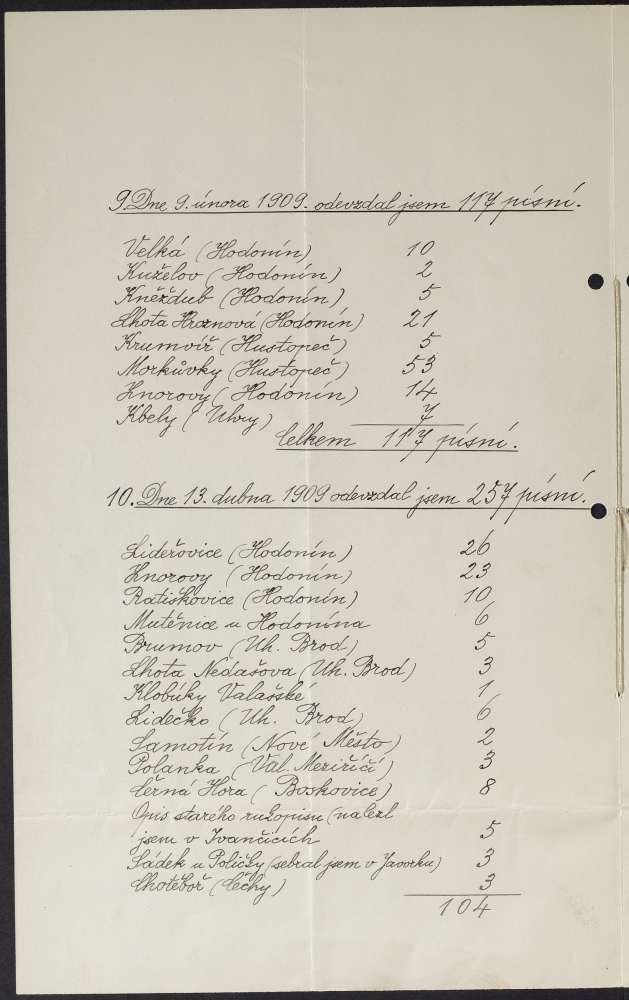 9. Dne 9. února 1909. odevzdal jsem 117 písní.
Velká (Hodonín) 10
Kuželov (Hodonín) 2
Kněždub (Hodonín) 5
Lhota Hroznová (Hodonín) 21
Krumvíř (Hustopeč) 5
Morkůvky (Hustopeč) 53
Znorovy (Hodonín) 14
Kbely (Uhry) 7
Celkem 117 písní.
10. Dne 13. dubna 1909 odevzdal jsem 257 písní.
Lideřovice (Hodonín) 26
Znorovy (Hodonín) 23
Ratiškovice (Hodonín) 10
Mutěnice u Hodonína 6
Brumov (Uh. Brod) 5
Lhota Nedašova (Uh. Brod) 3
Klobúky Valašské 1
Lidečko (Uh. Brod) 6
Samotín (Nové Město) 2
Polanka (Val. Meziříčí) 3
Černá Hora (Boskovice) 8
Opis starého rukopisu (nalezl
jsem v Ivančicích 5
Sádek u Poličky (sebral jsem v Javorku) 3
Chotěboř (Čechy) 3
104